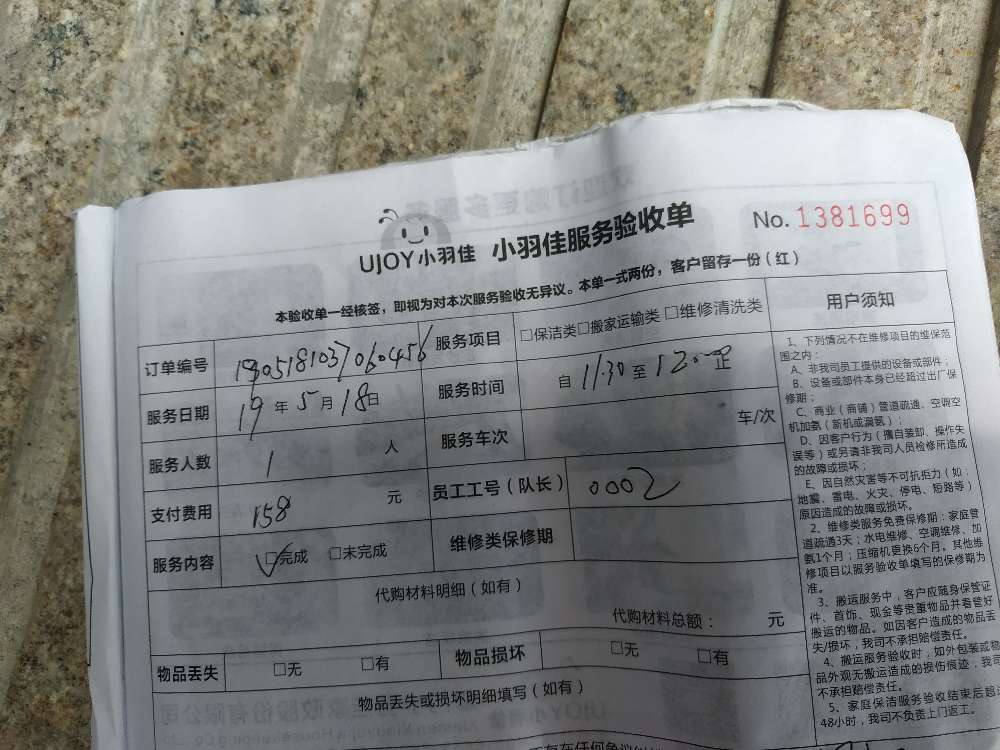 UJOY小羽佳 小羽佳服务验收单 No.1381699
本验收单一经核签，即视为对本次服务验收无异议。本单一式两份，客户留存一份（红）
订单编号 1905181037060456 服务项目 □保洁类□搬家运输类 □维修清洗类
服务日期 19年5月18日 服务时间 自 11:30 至 12:00 正
服务人数 1 人 服务车次 车/次
支付费用 158 元 员工工号（队长） 0002
服务内容 ☑完成 □未完成 维修类保修期
代购材料明细（如有）
代购材料总额： 元
物品丢失 □无 □有 物品损坏 □无 □有
物品丢失或损坏明细填写（如有）
用户须知
1、下列情况不在维修项目的维保范
围之内：
A、非我司员工提供的设备或部件；
B、设备或部件本身已经超过出厂保
修期；
C、商业（商铺）管道疏通、空调空
机加氨（新机或漏氨）；
D、因客户行为（擅自装卸、操作失
误等）或另请非我司人员检修所造成
的故障或损坏；
E、因自然灾害等不可抗拒力（如：
地震、雷电、火灾、停电、短路等）
原因造成的故障或损坏。
2、维修类服务免费保修期：家庭管
道疏通3天；水电维修、空调维修、加
氨1个月；压缩机更换6个月。其他维
修项目以服务验收单填写的保修期为
准。
3、搬运服务中，客户应随身保管证
件、首饰、现金等贵重物品并看管好
搬运的物品。如因客户造成的物品丢
失/损坏，我司不承担赔偿责任。
4、搬运服务验收时，如外包装或物
品外观无搬运造成的损伤痕迹，我司
不承担赔偿责任。
5、家庭保洁服务验收结束后超过
48小时，我司不负责上门返工。